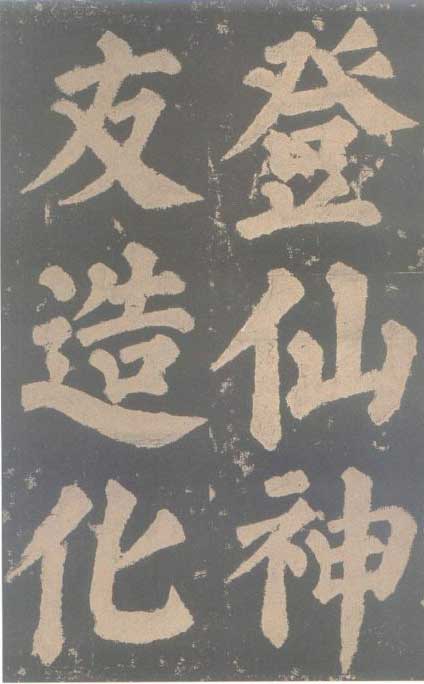 登仙神
友造化